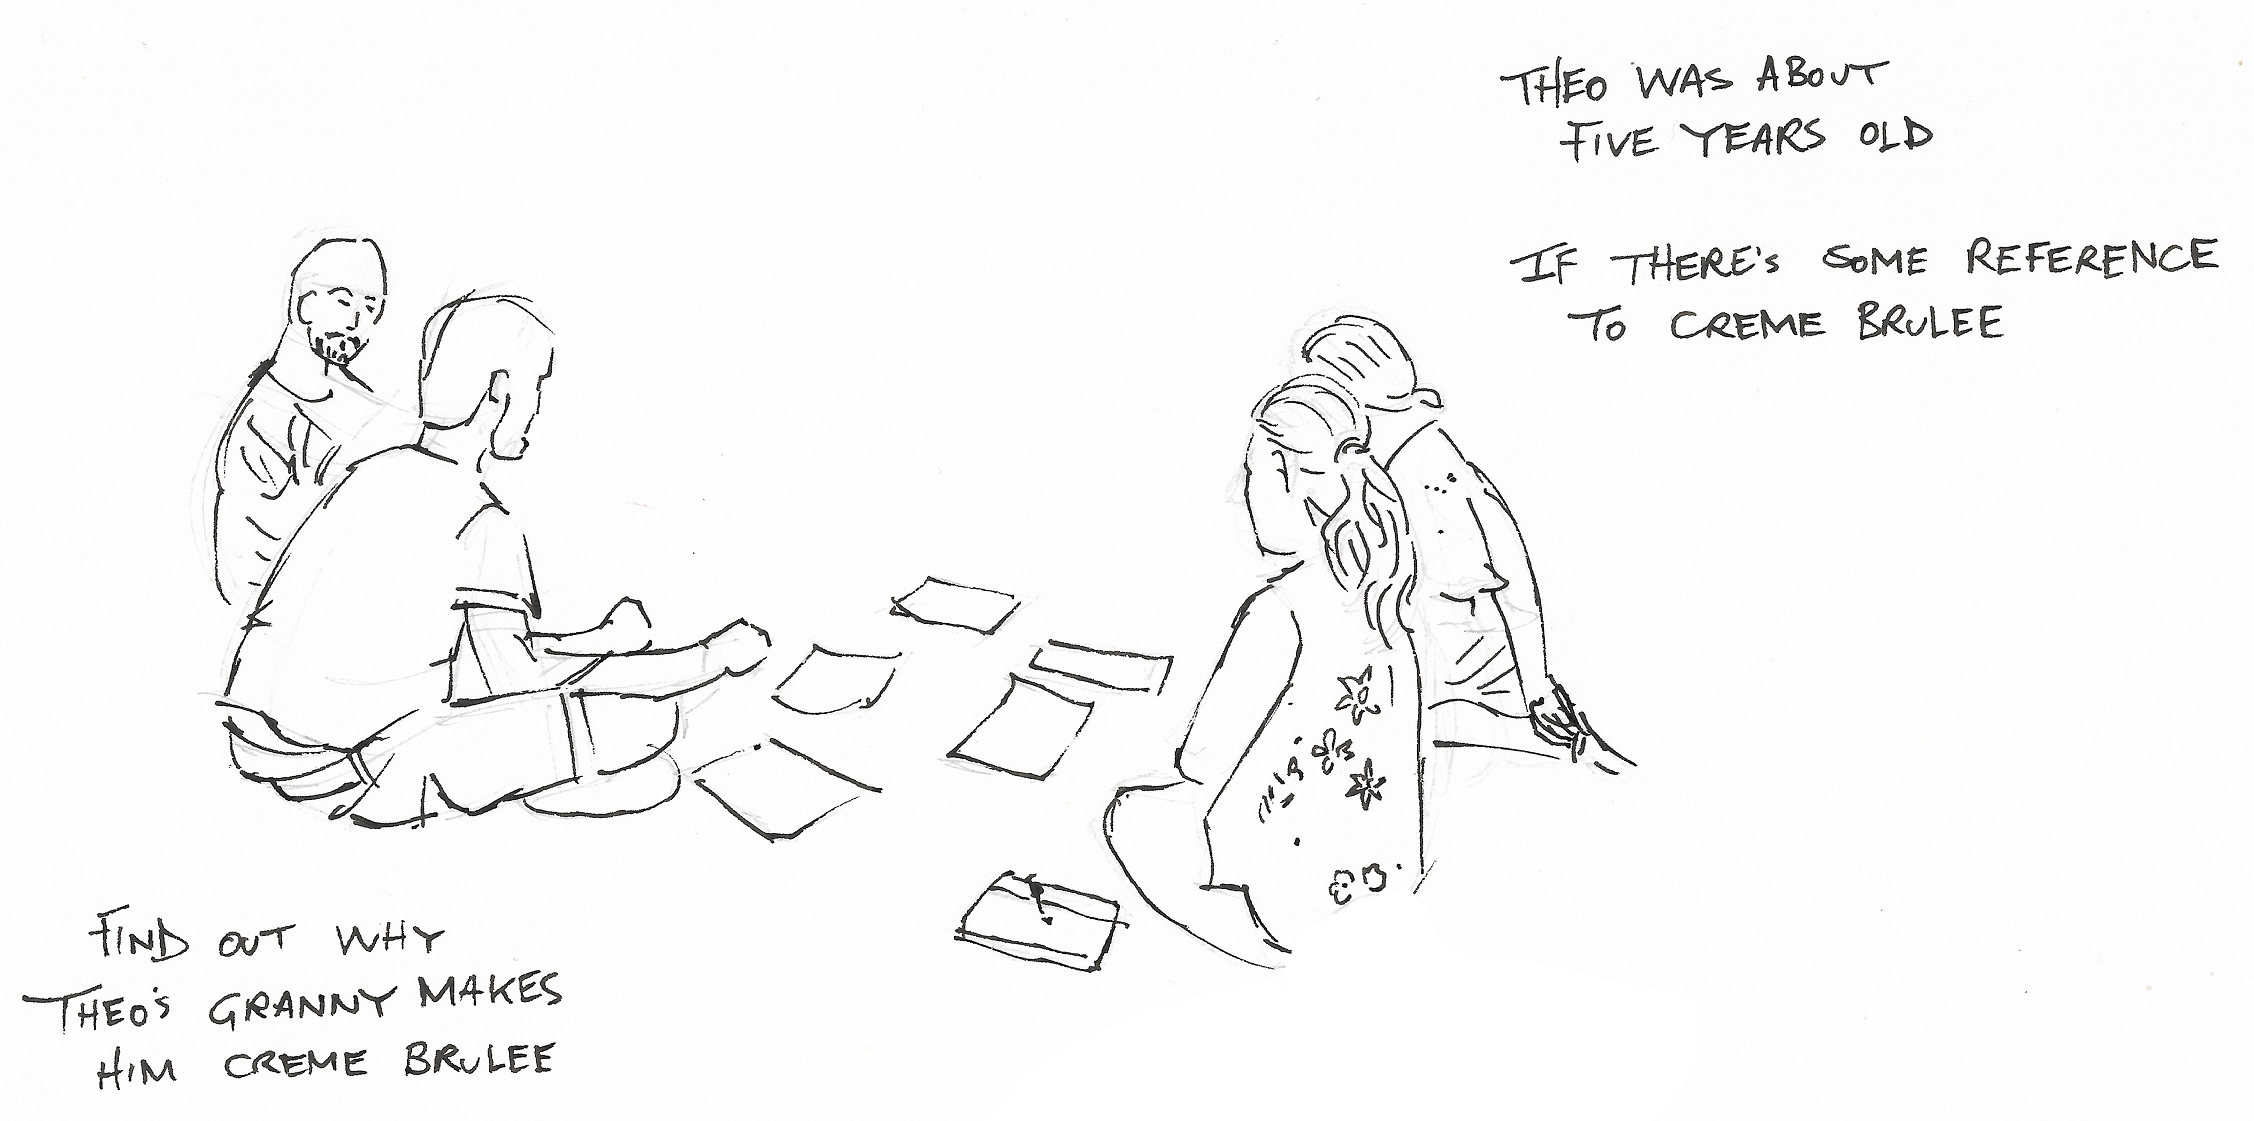 THEO WAS ABOUT
FIVE YEARS OLD
IF THERE'S SOME REFERENCE
TO CREME BRULEE
FIND OUT WHY
THEO'S GRANNY MAKES
HIM CREME BRULEE